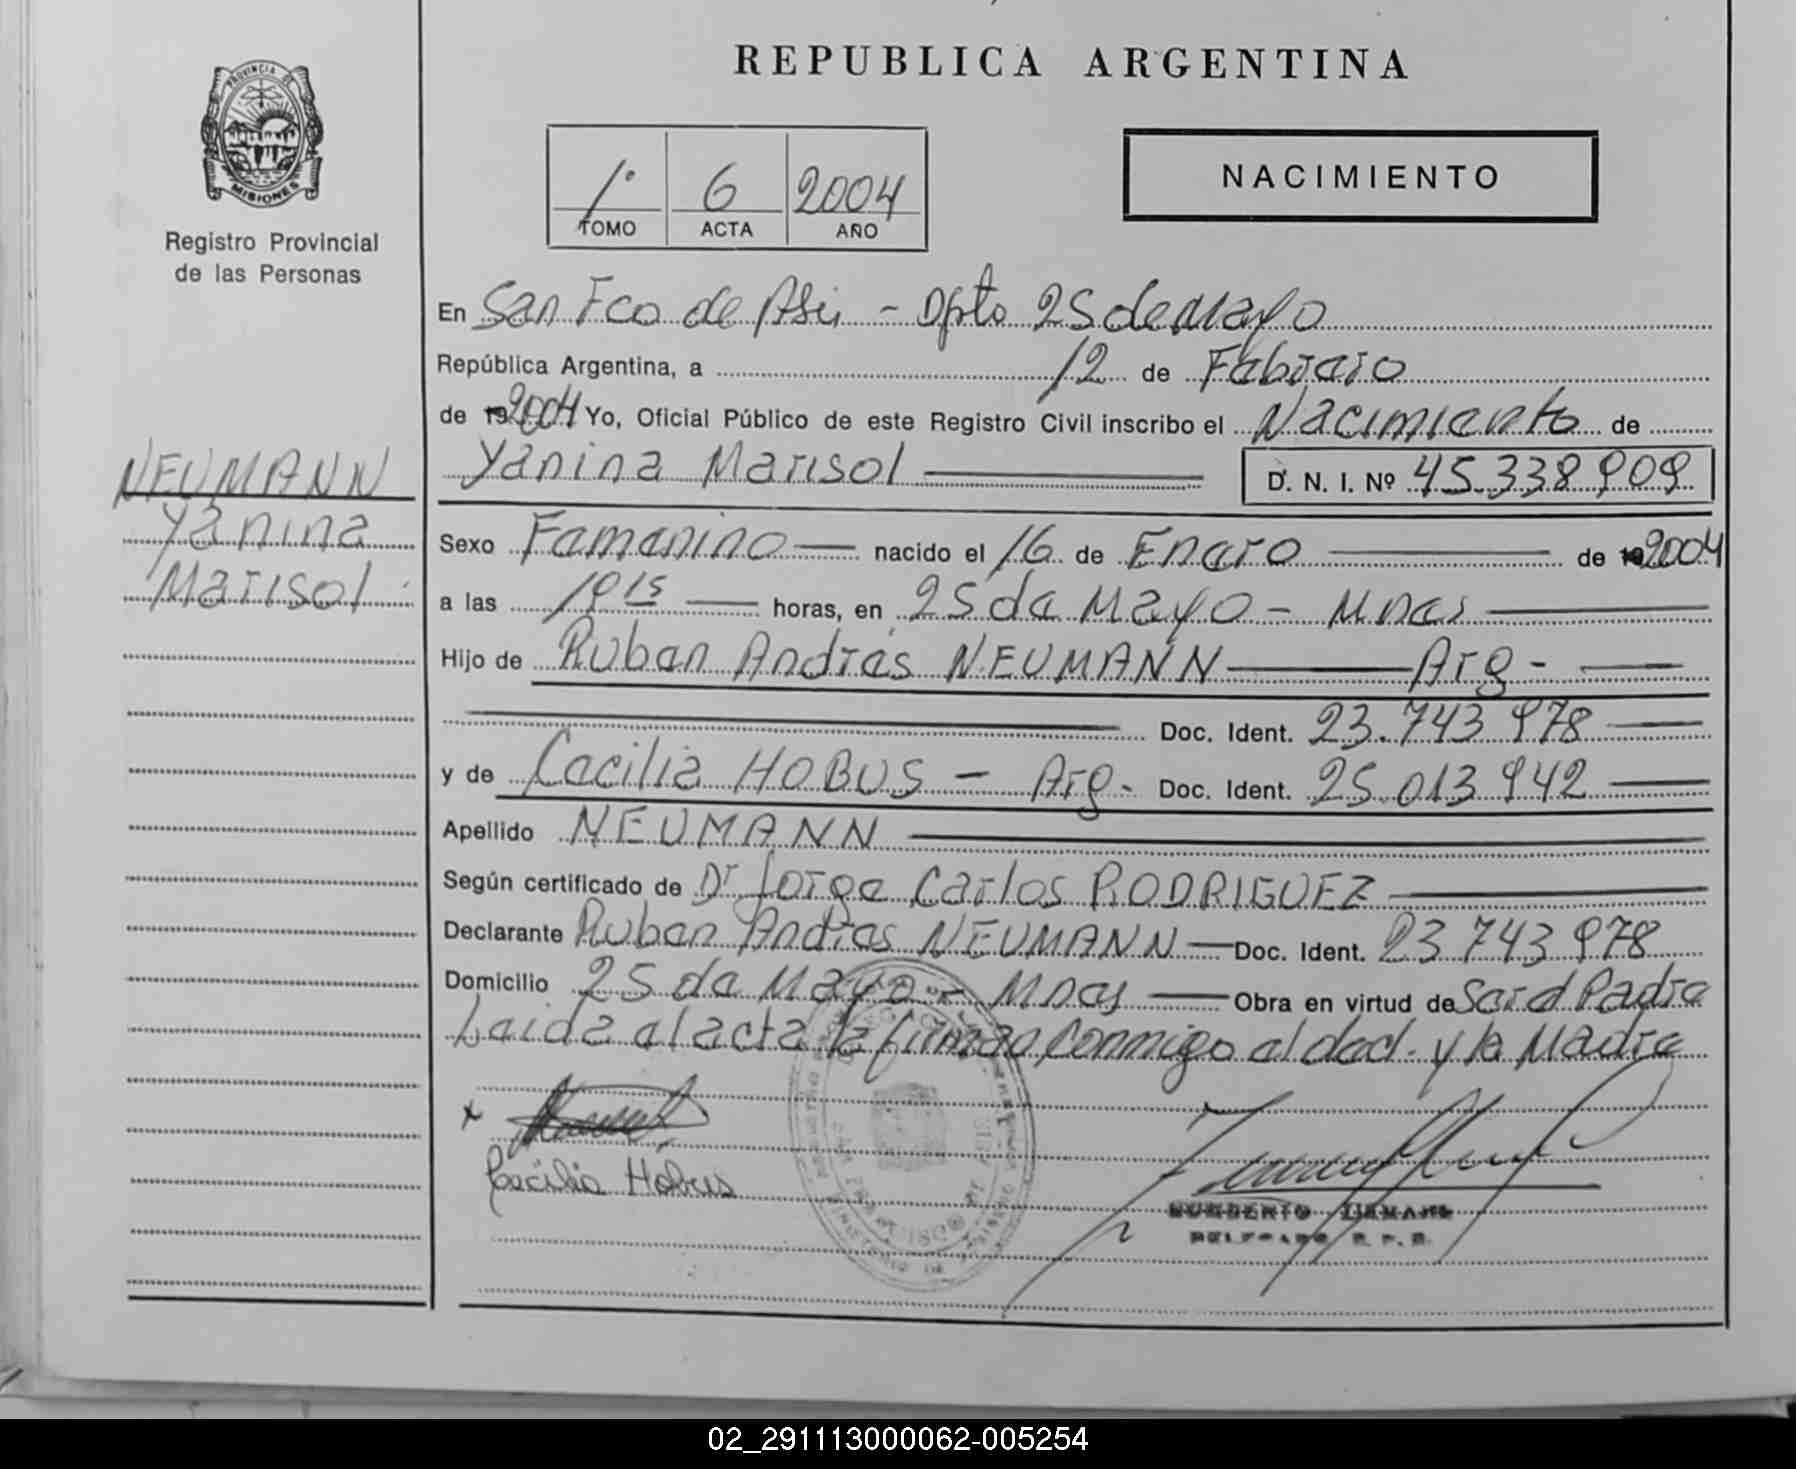 REPUBLICA ARGENTINA
PROVINCIA DE
MISIONES
Registro Provincial
de las Personas
1° 6 2004
TOMO ACTA AÑO
NACIMIENTO
En San Fco de Asis - Dpto 25 de Mayo
República Argentina, a 12 de Febrero
de 2004 Yo, Oficial Público de este Registro Civil inscribo el Nacimiento de
Yanina Marisol D. N. I. Nº 45.338.909
NEUMANN
Yanina
Marisol
Sexo Femenino nacido el 16 de Enero de 2004
a las horas, en 25 de Mayo - Mnes
Hijo de Ruben Andrés NEUMANN Arg -
Doc. Ident. 23.743.978
y de Cecilia HOBUS - Arg - Doc. Ident. 25.013.942
Apellido NEUMANN
Según certificado de Dr Jorge Carlos RODRIGUEZ
Declarante Ruben Andres NEUMANN Doc. Ident. 23.743.978
Domicilio 25 de Mayo - Mnes Obra en virtud de Ser el Padre
Leida el acta la firman conmigo el decl. y la Madre
x
Cecilia Hobus
02_291113000062-005254